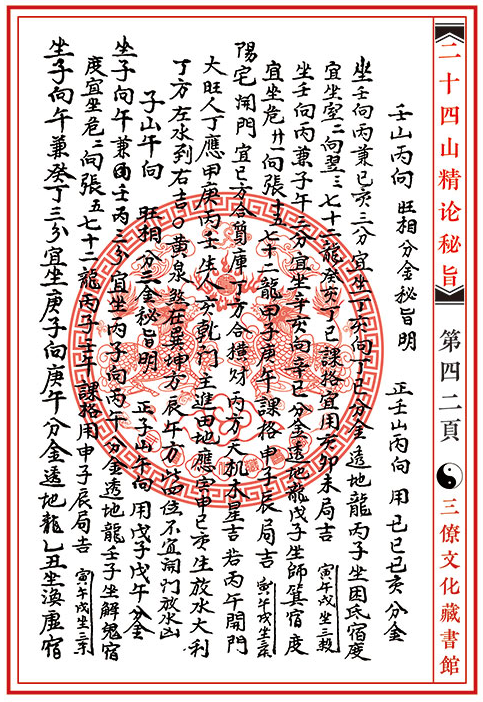 二十四山精论秘旨 第四二頁 三僚文化藏書館
壬山丙向 旺相分金秘旨明 正壬山丙向 用己巳己亥分金
坐壬向丙兼巳亥三分宜坐丁亥向丁巳分金透地龍丙子坐困氐宿度
宜坐室二向翌三七十二龍癸亥丁巳課格宜用亥卯未局吉 寅午戌坐三殺
坐壬向丙兼子午三分宜坐辛亥向辛巳分金透地龍戊子坐師箕宿度
宜坐危廿一向張十五七十二龍甲子庚午課格申子辰局吉 寅午戌坐三杀
陽宅開門宜巳方合貿庫丁方合横财丙方天机木星吉若丙午開門
大旺人丁應甲庚丙壬生人亥乾門主進田地應寅申巳亥生放水大利
丁方左水到右吉○黄泉煞在巽坤方辰午方此四位不宜開门放水凶
子山午向 旺相分三金秘旨明 正子山午向用戊子戊午分金
坐子向午兼壬丙三分宜坐丙子向丙午分金透地龍壬子坐解鬼宿
度宜坐危二向張五七十二龍丙子壬午課格用申子辰局吉 寅午戌坐三杀
坐子向午兼癸丁三分宜坐庚子向庚午分金透地龍乙丑坐渙虛宿